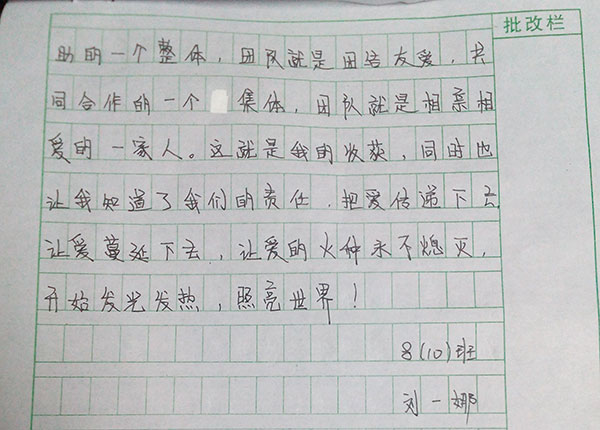 批改栏
助的一个整体，团队就是团结友爱，共
同合作的一个集体，团队就是相亲相
爱的一家人。这就是我的收获，同时也
让我知道了我们的责任，把爱传递下去
让爱蔓延下去，让爱的火种永不熄灭，
开始发光发热，照亮世界！
8(10)班
刘一娜